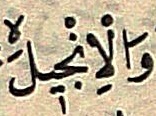 وَالْإِنْجِيلَ ۙ